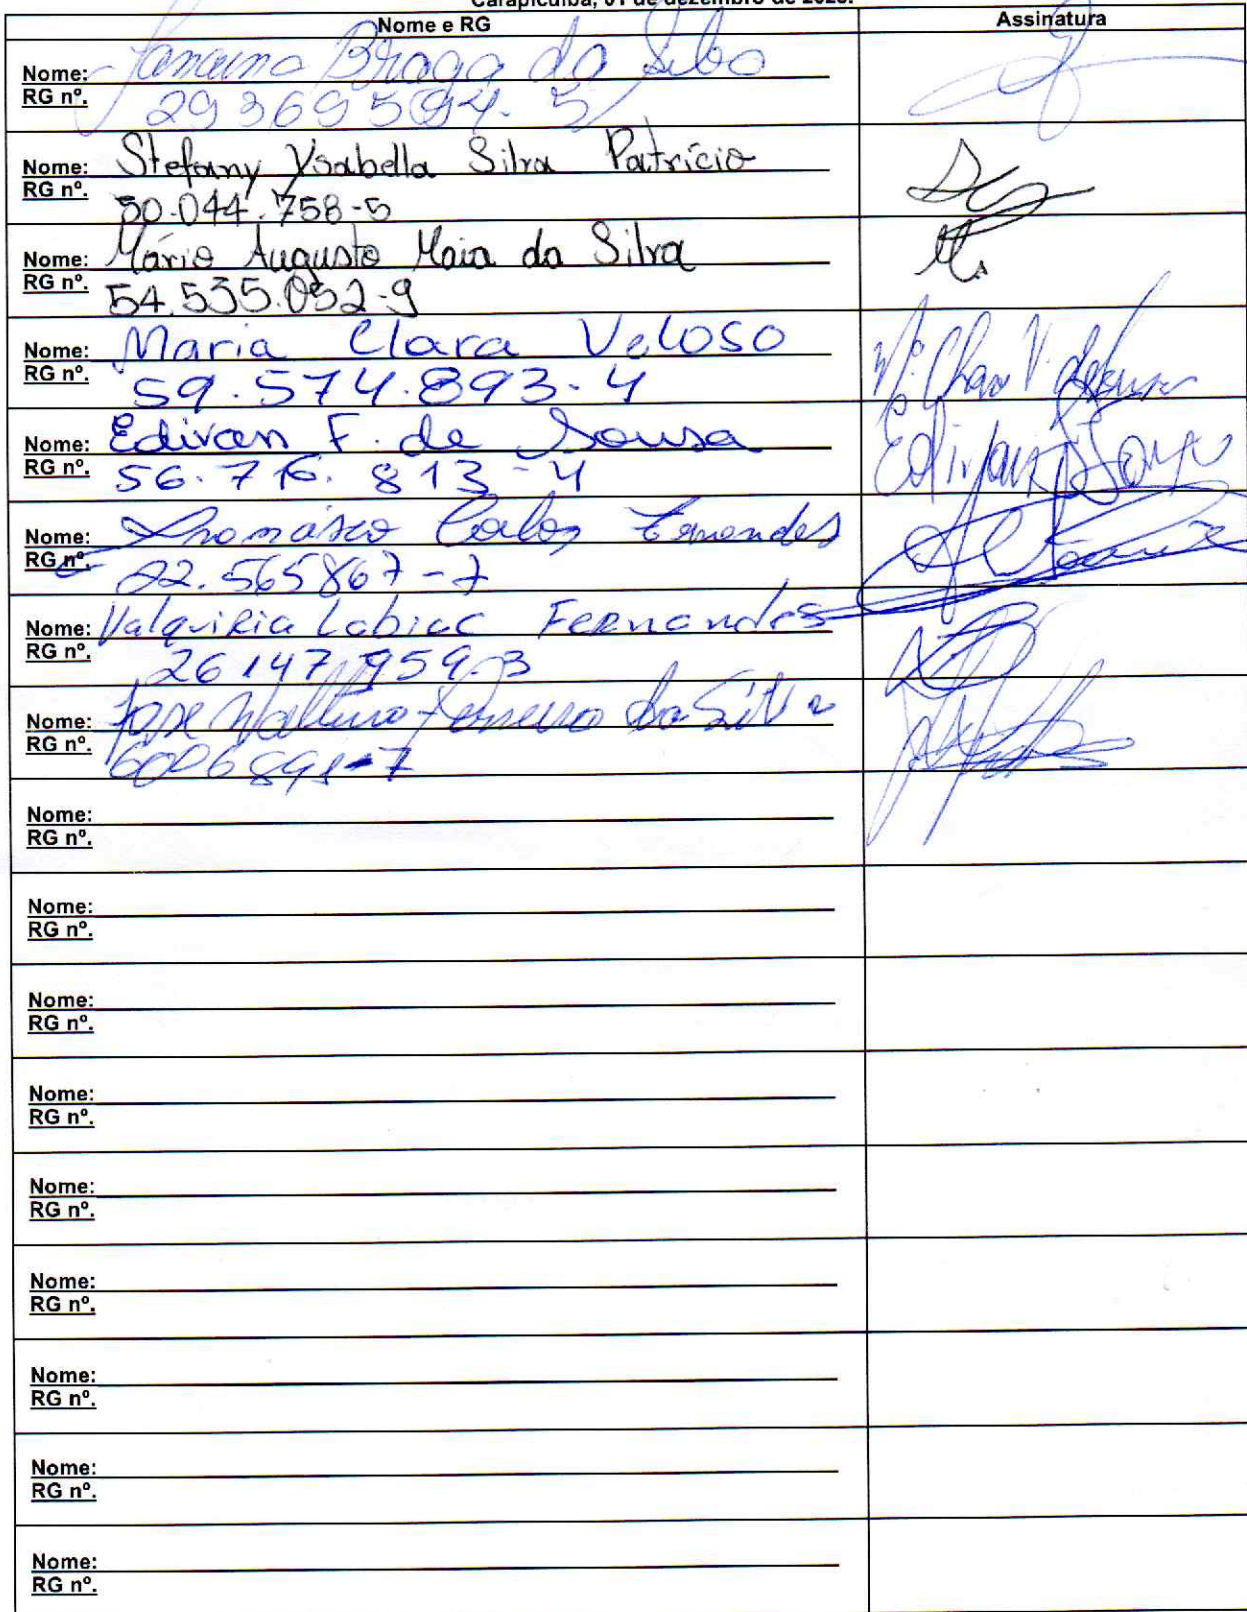 Carapicuíba, 01 de dezembro de 2023.
Nome e RG Assinatura
Nome: Janaina Braga da Silva
RG nº. 29369594-5
Nome: Stefany Ysabella Silva Patrício
RG nº. 50.044.758-5
Nome: Mário Augusto Maia da Silva
RG nº. 54.535.052-9
Nome: Maria Clara Veloso
RG nº. 59.574.893-4
Nome: Edivan F. de Sousa
RG nº. 56.776.813-4
Nome: Carlos Fernandes
RG nº. 22.565867-7
Nome: Valquiria Labiac Fernandes
RG nº. 26147959.3
Nome: Jose da Silva
RG nº.
Nome:
RG nº.
Nome:
RG nº.
Nome:
RG nº.
Nome:
RG nº.
Nome:
RG nº.
Nome:
RG nº.
Nome:
RG nº.
Nome:
RG nº.
Nome:
RG nº.